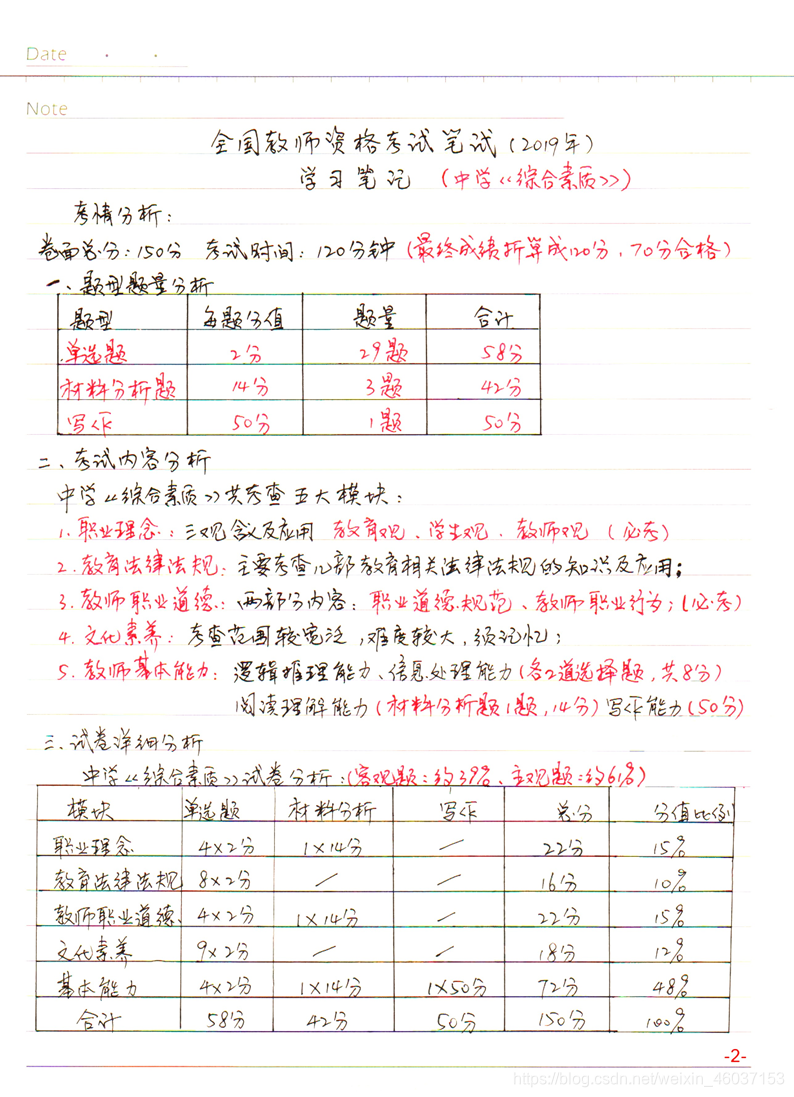 Date
Note
全国教师资格考试笔试(2019年)
学习笔记 (中学《综合素质》)
考情分析:
卷面总分:150分 考试时间:120分钟(最终成绩折算成120分,70分合格)
一、题型题量分析
题型 每题分值 题量 合计
单选题 2分 29题 58分
材料分析题 14分 3题 42分
写作 50分 1题 50分
二、考试内容分析
中学《综合素质》共考查五大模块:
1.职业理念:三观含义及应用 教育观、学生观、教师观 (必考)
2.教育法律法规:主要考查几部教育相关法律法规的知识及应用;
3.教师职业道德:两部分内容:职业道德规范、教师职业行为;(必考)
4.文化素养:考查范围较宽泛,难度较大,须记忆;
5.教师基本能力:逻辑推理能力、信息处理能力(各2道选择题,共8分)
阅读理解能力(材料分析题1题,14分)写作能力(50分)
三、试卷详细分析
中学《综合素质》试卷分析:(客观题:约39%、主观题:约61%)
模块 单选题 材料分析 写作 总分 分值比例
职业理念 4×2分 1×14分 / 22分 15%
教育法律法规 8×2分 / / 16分 10%
教师职业道德 4×2分 1×14分 / 22分 15%
文化素养 9×2分 / / 18分 12%
基本能力 4×2分 1×14分 1×50分 72分 48%
合计 58分 42分 50分 150分 100%
-2-
https://blog.csdn.net/weixin_46037153